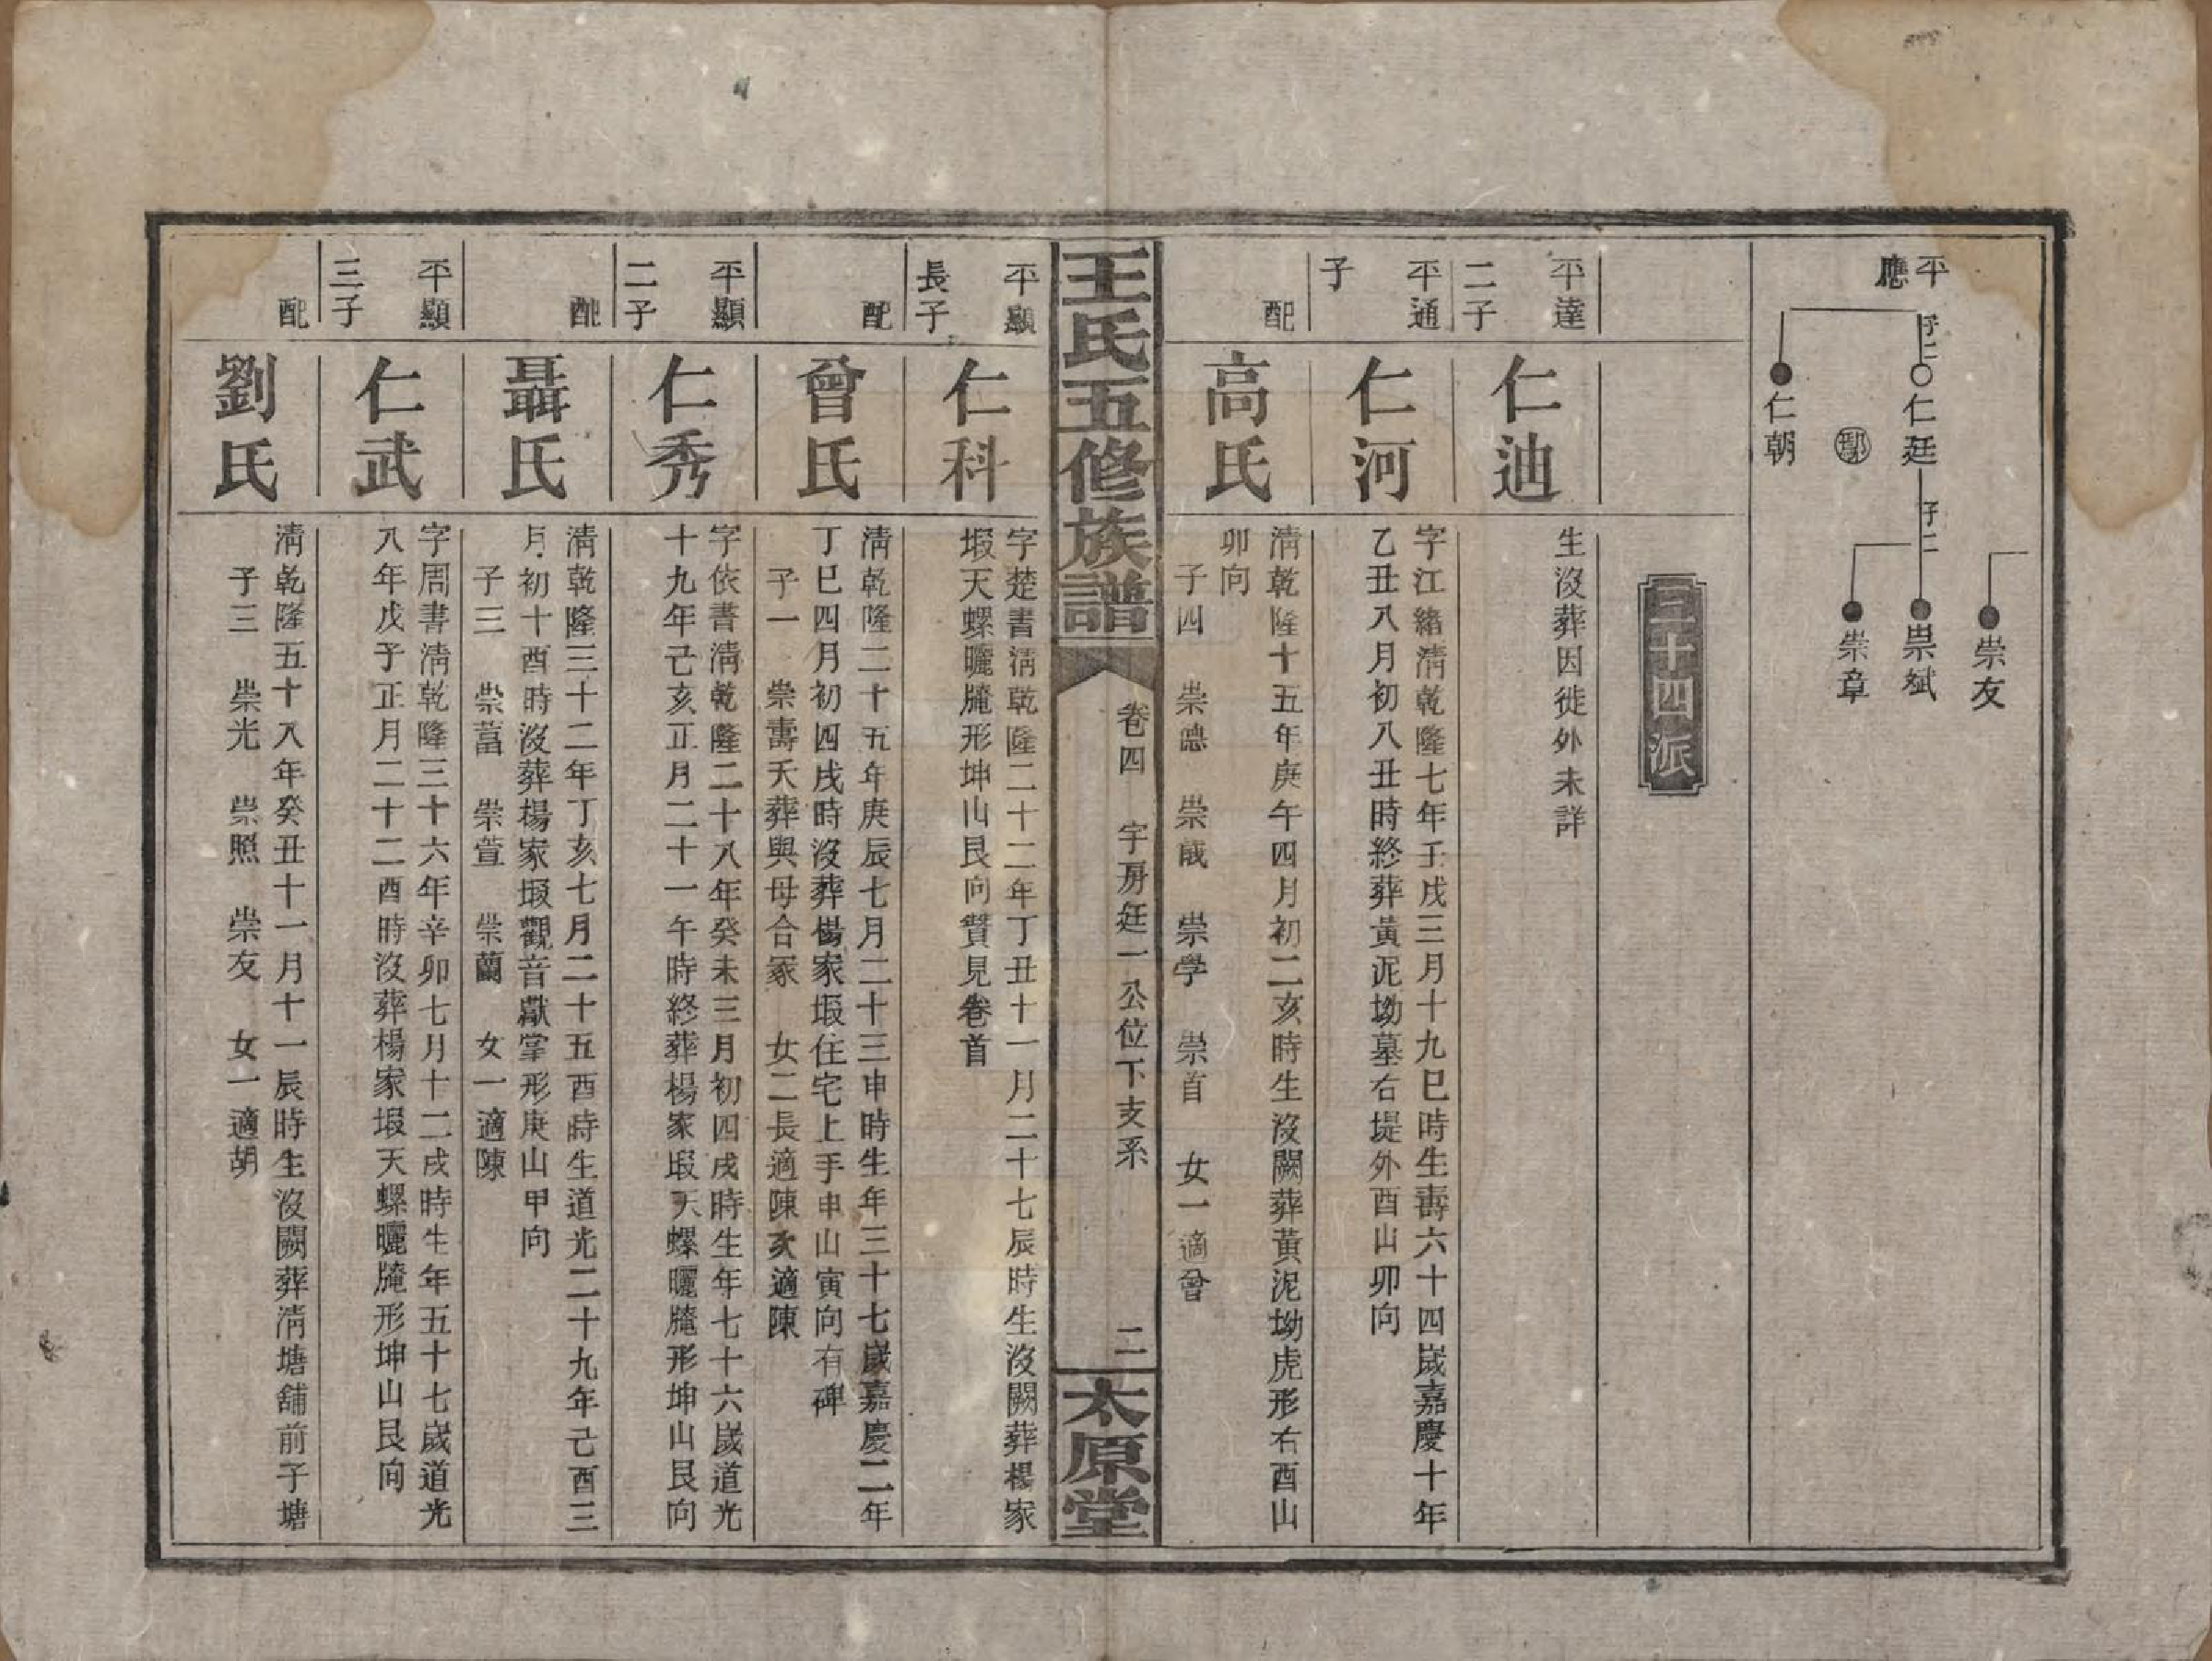 崇友
平應
子二
仁廷
子二
崇斌
崇章
鄢
仁朝
三十四派
平達二子
仁迪
生沒葬因徙外未詳
平通子
仁河
字江絡清乾隆七年壬戌三月十九巳時生壽六十四歲嘉慶十年
乙丑八月初八丑時終葬黃泥坳墓右堤外酉山卯向
配
高氏
清乾隆十五年庚午四月初二亥時生沒闕葬黃泥坳虎形右酉山
卯向
子四 崇德 崇歲 崇學 崇首 女一適曾
王氏五修族譜
卷四 字房廷一公位下支系
二
太原堂
平顯長子
仁科
字楚書清乾隆二十二年丁丑十一月二十七辰時生沒闕葬楊家
塅天螺曬醃形坤山艮向贊見卷首
配
曾氏
清乾隆二十五年庚辰七月二十三申時生年三十七歲嘉慶二年
丁巳四月初四戌時沒葬楊家塅住宅上手申山寅向有碑
子一 崇壽夭葬與母合冢 女二長適陳次適陳
平顯二子
仁秀
字依書清乾隆二十八年癸未三月初四戌時生年七十六歲道光
十九年己亥正月二十一午時終葬楊家塅天螺曬醃形坤山艮向
配
聶氏
清乾隆三十二年丁亥七月二十五酉時生道光二十九年己酉三
月初十酉時沒葬楊家塅觀音獻掌形庚山甲向
子三 崇菖 崇萱 崇蘭 女一適陳
平顯三子
仁武
字周書清乾隆三十六年辛卯七月十二戌時生年五十七歲道光
八年戊子正月二十二酉時沒葬楊家塅天螺曬醃形坤山艮向
配
劉氏
清乾隆五十八年癸丑十一月十一辰時生沒闕葬清塘舖前子塘
子三 崇光 崇照 崇友 女一適胡